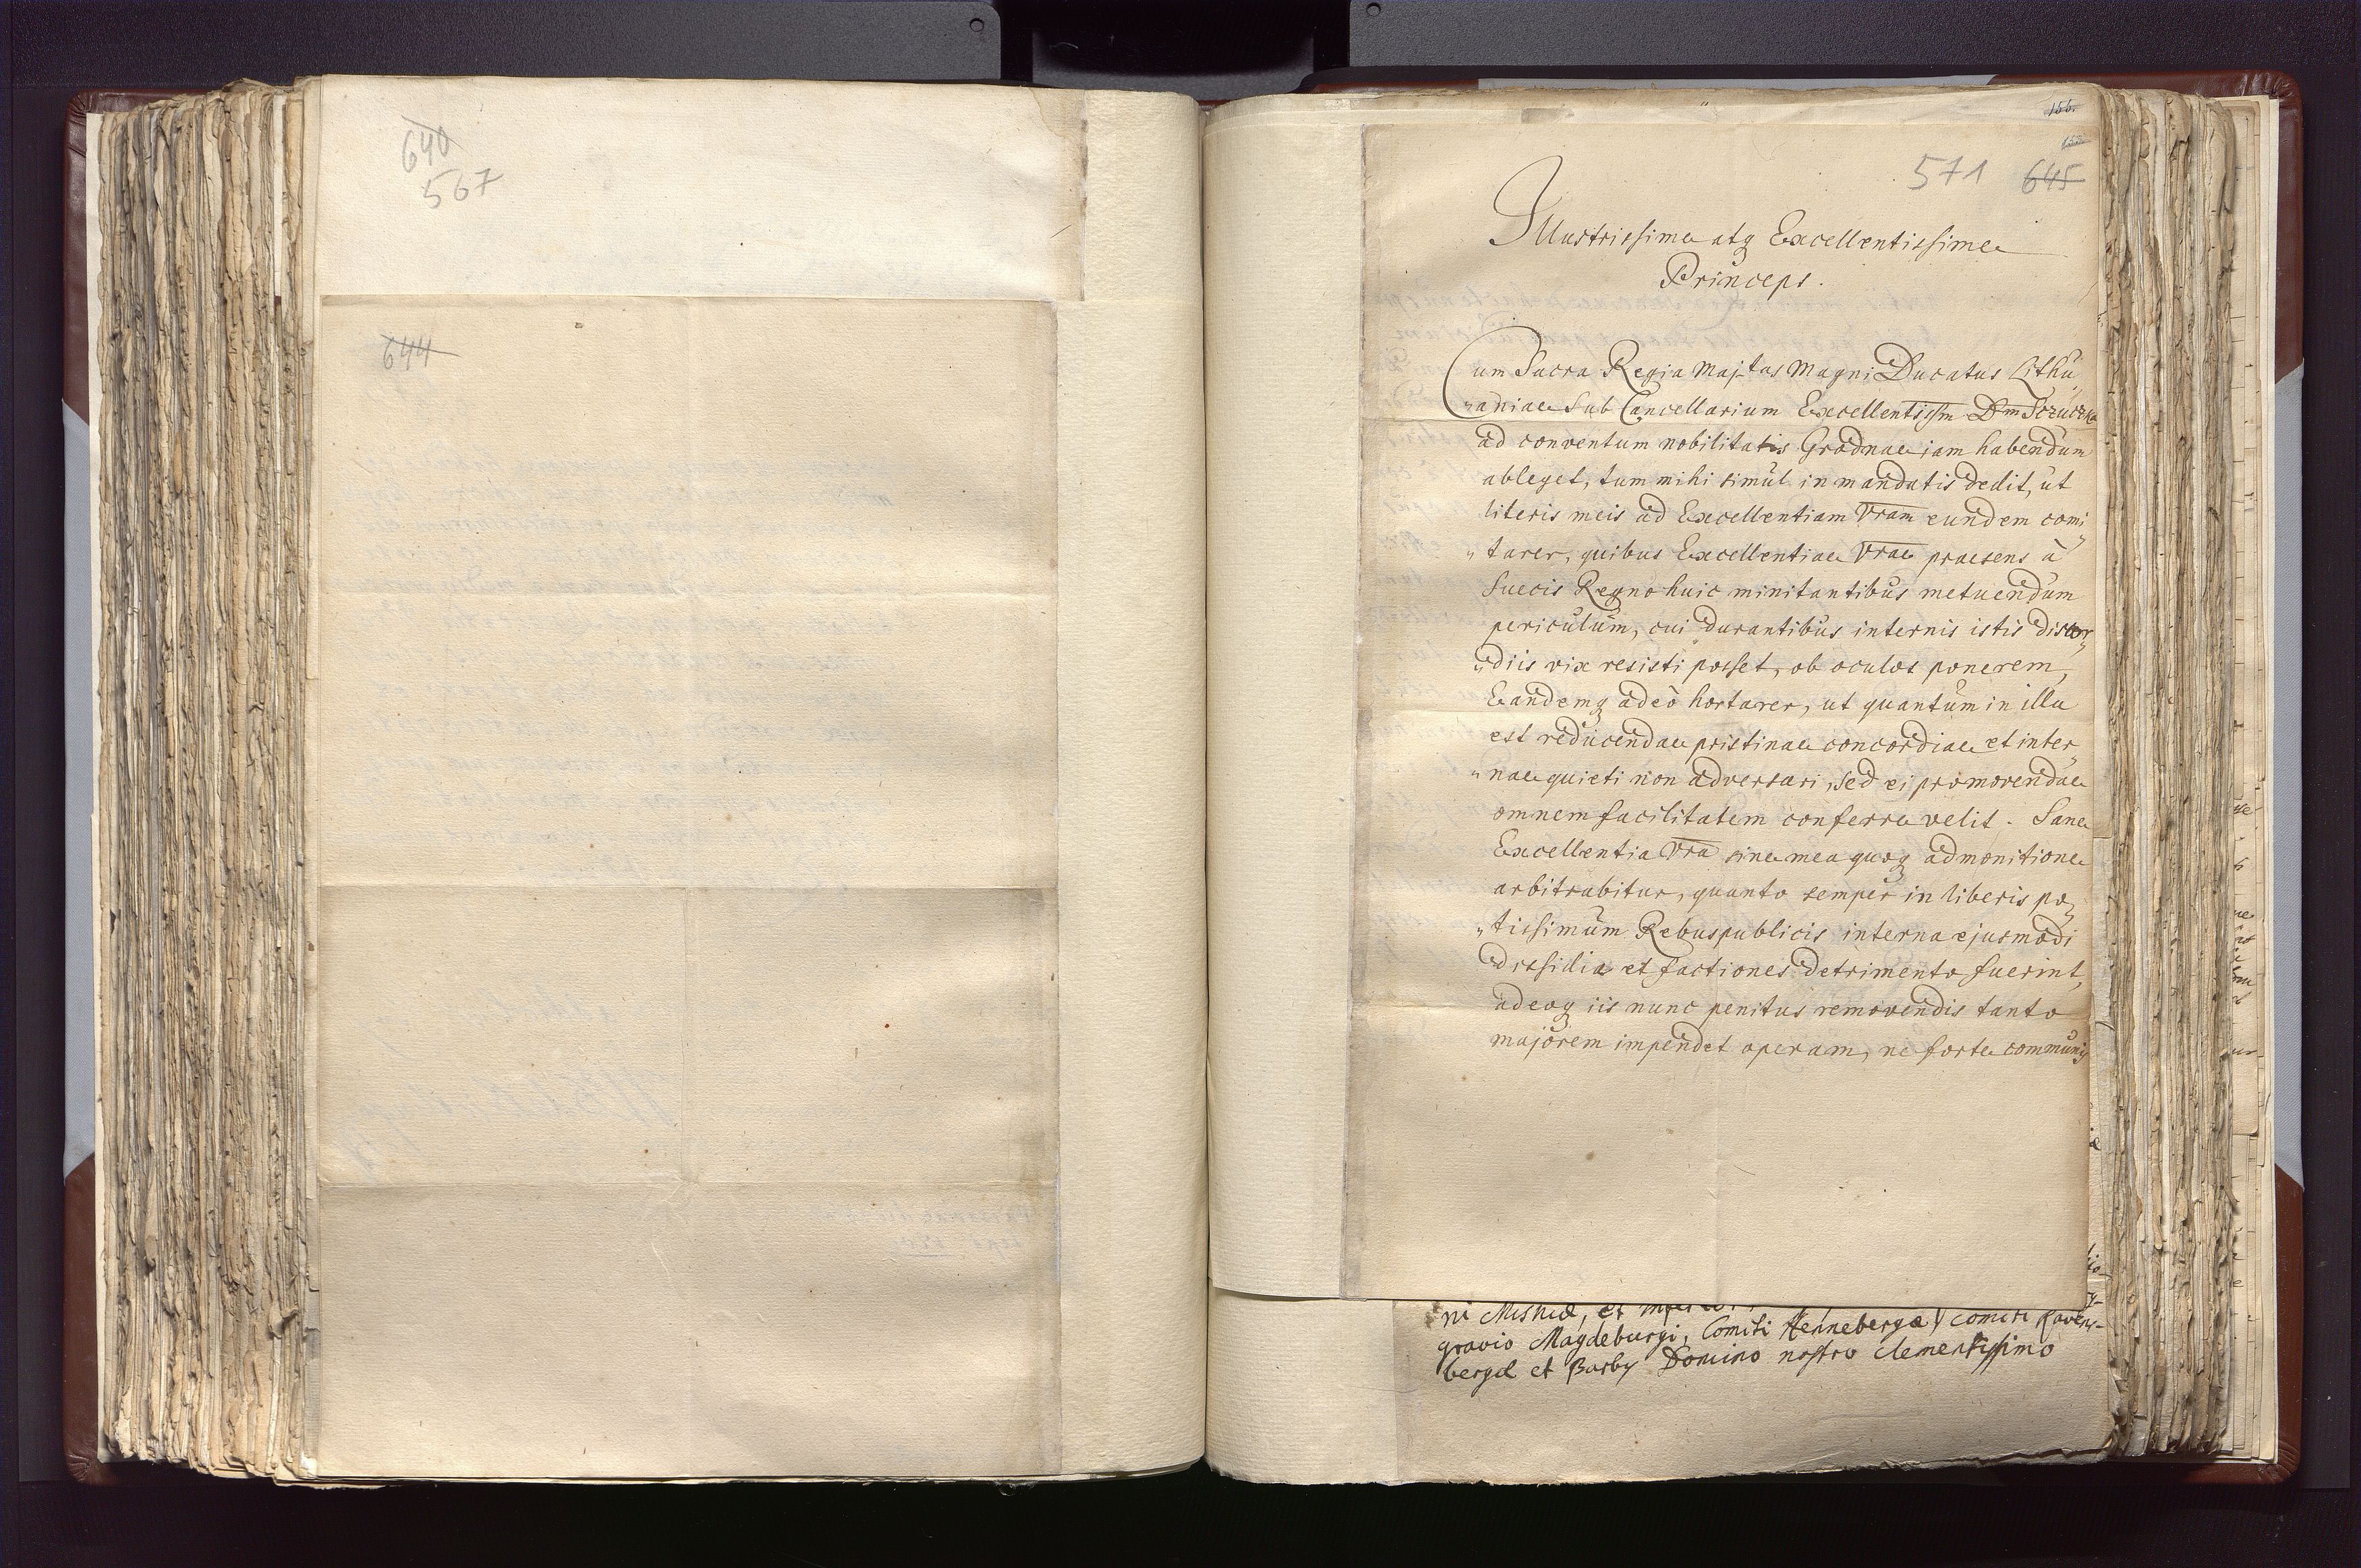 640
567
644
156.
571 645
Illustrissime atq Excellentissime
Princeps.
Cum Sacra Regia Maj-tas Magni Ducatus Lithu
"aniae Sub Cancellarium Excellentissm Dnm Sczuczka
ad conventum nobilitatis Grodnae jam habendum
ableget, tum mihi simul in mandatis dedit, ut
literis meis ad Excellentiam Vram eundem comi
"tarer, quibus Excellentiae Vrae praesens à
Suecis Regno huic minitantibus metuendum
periculum, cui durantibus internis istis discor
"diis vix resisti posset, ob oculos ponerem,
Eandemq adeò hortarer, ut quantum in illa
est reducendae pristinae concordiae et inter
"nae quieti non adversari, sed ei promovendae
omnem facilitatem conferre velit. Sane
Excellentia Vra sine mea quoq admonitione
arbitrabitur, quanto semper in liberis po
"tissimum Rebuspublicis interna ejusmodi
dissidia et factiones detrimento fuerint,
adeoq iis nunc penitus removendis tanto
majorem impendet operam, ne forte communis
ni Misniæ, et
gravio Magdeburgi, Comiti Hennebergæ, Comiti Ravens-
bergæ et Barby Domino nostro clementissimo